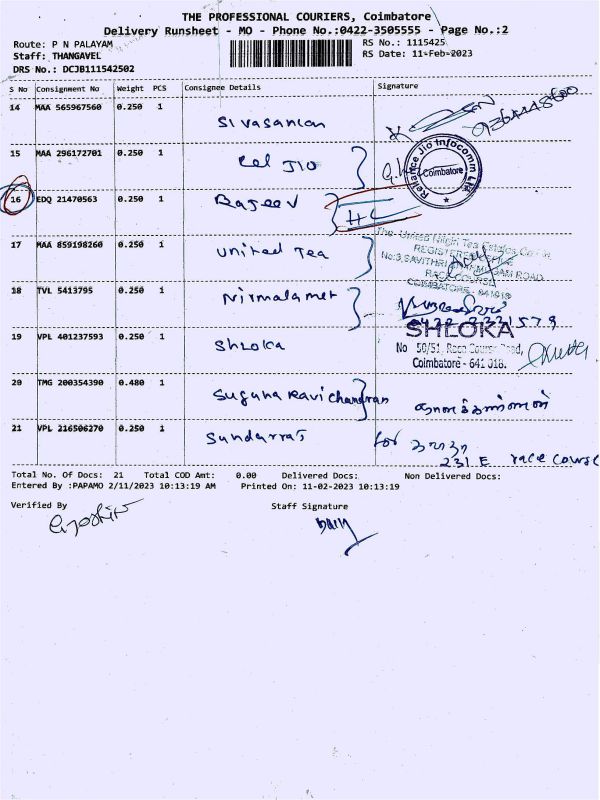 THE PROFESSIONAL COURIERS, Coimbatore
Delivery Runsheet - MO - Phone No.:0422-3505555 - Page No.:2
Route: P N PALAYAM
RS No.: 1115425
Staff: THANGAVEL
RS Date: 11-Feb-2023
DRS No.: DCJB111542502
S No Consignment No Weight PCS Consignee Details Signature
14 MAA 565967560 0.250 1
Sivasankar
15 MAA 296172701 0.250 1
Rel Jio
Reliance Jio Infocomm Ltd
Coimbatore
16 EDQ 21470563 0.250 1
Rajeev
HC
17 MAA 859198260 0.250 1
United Tea
The United Nilgiri Tea Estates Co. Ltd.
REGISTERED OFFICE
No:3, SAVITHRI SHANMUGAM ROAD
RACE COURSE
COIMBATORE - 641018
18 TVL 5413795 0.250 1
Nirmalamet
0422 2221578
19 VPL 401237593 0.250 1
Shloka
SHLOKA
No 50/51, Race Course Road,
Coimbatore - 641 018.
20 TMG 200354390 0.480 1
Suguna Ravichandran
21 VPL 216506270 0.250 1
Sundarraj
for
231 E race course
Total No. Of Docs: 21 Total COD Amt: 0.00 Delivered Docs: Non Delivered Docs:
Entered By :PAPAMO 2/11/2023 10:13:19 AM Printed On: 11-02-2023 10:13:19
Verified By
Staff Signature